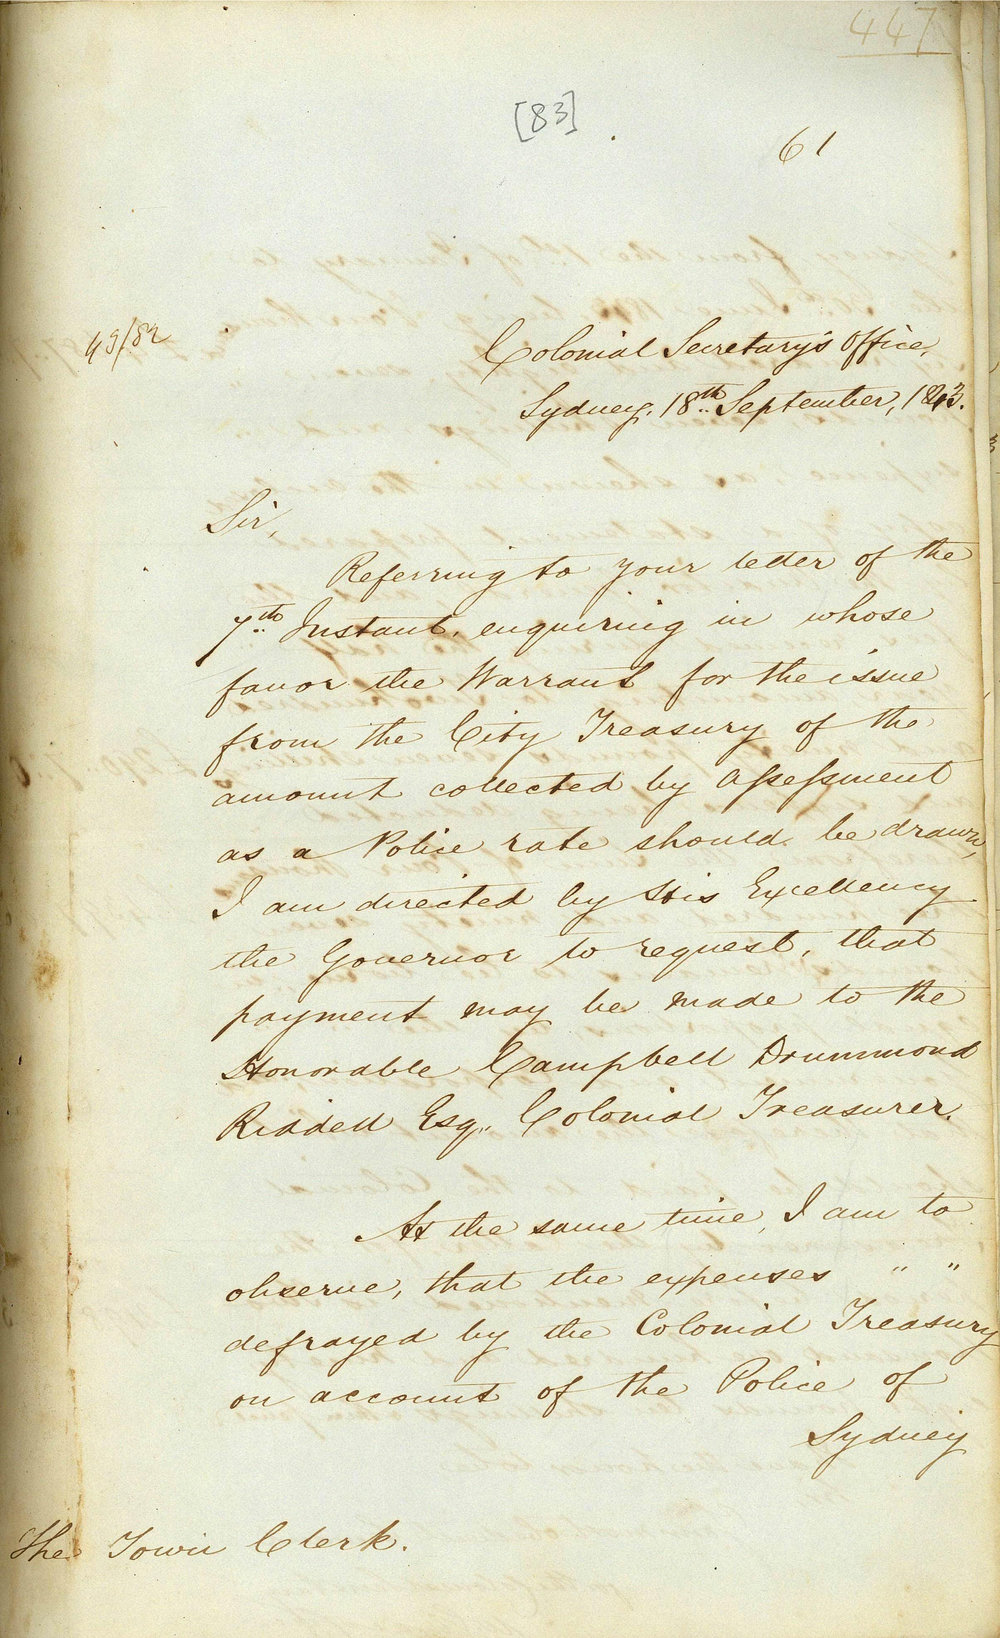 447
[83]
61
43/82
Colonial Secretary's Office,
Sydney. 18th September, 1843.
Sir,
Referring to your letter of the
7th Instant. enquiring in whose
favor the Warrant for the issue
from the City Treasury of the
amount collected by Assessment
as a Police rate should be drawn,
I am directed by His Excellency
the Governor to request, that
payment may be made to the
Honorable Campbell Drummond
Riddell Esq,, Colonial Treasurer.
At the same time, I am to
observe, that the expenses " "
defrayed by the Colonial Treasury
on account of the Police of
Sydney
The Town Clerk.